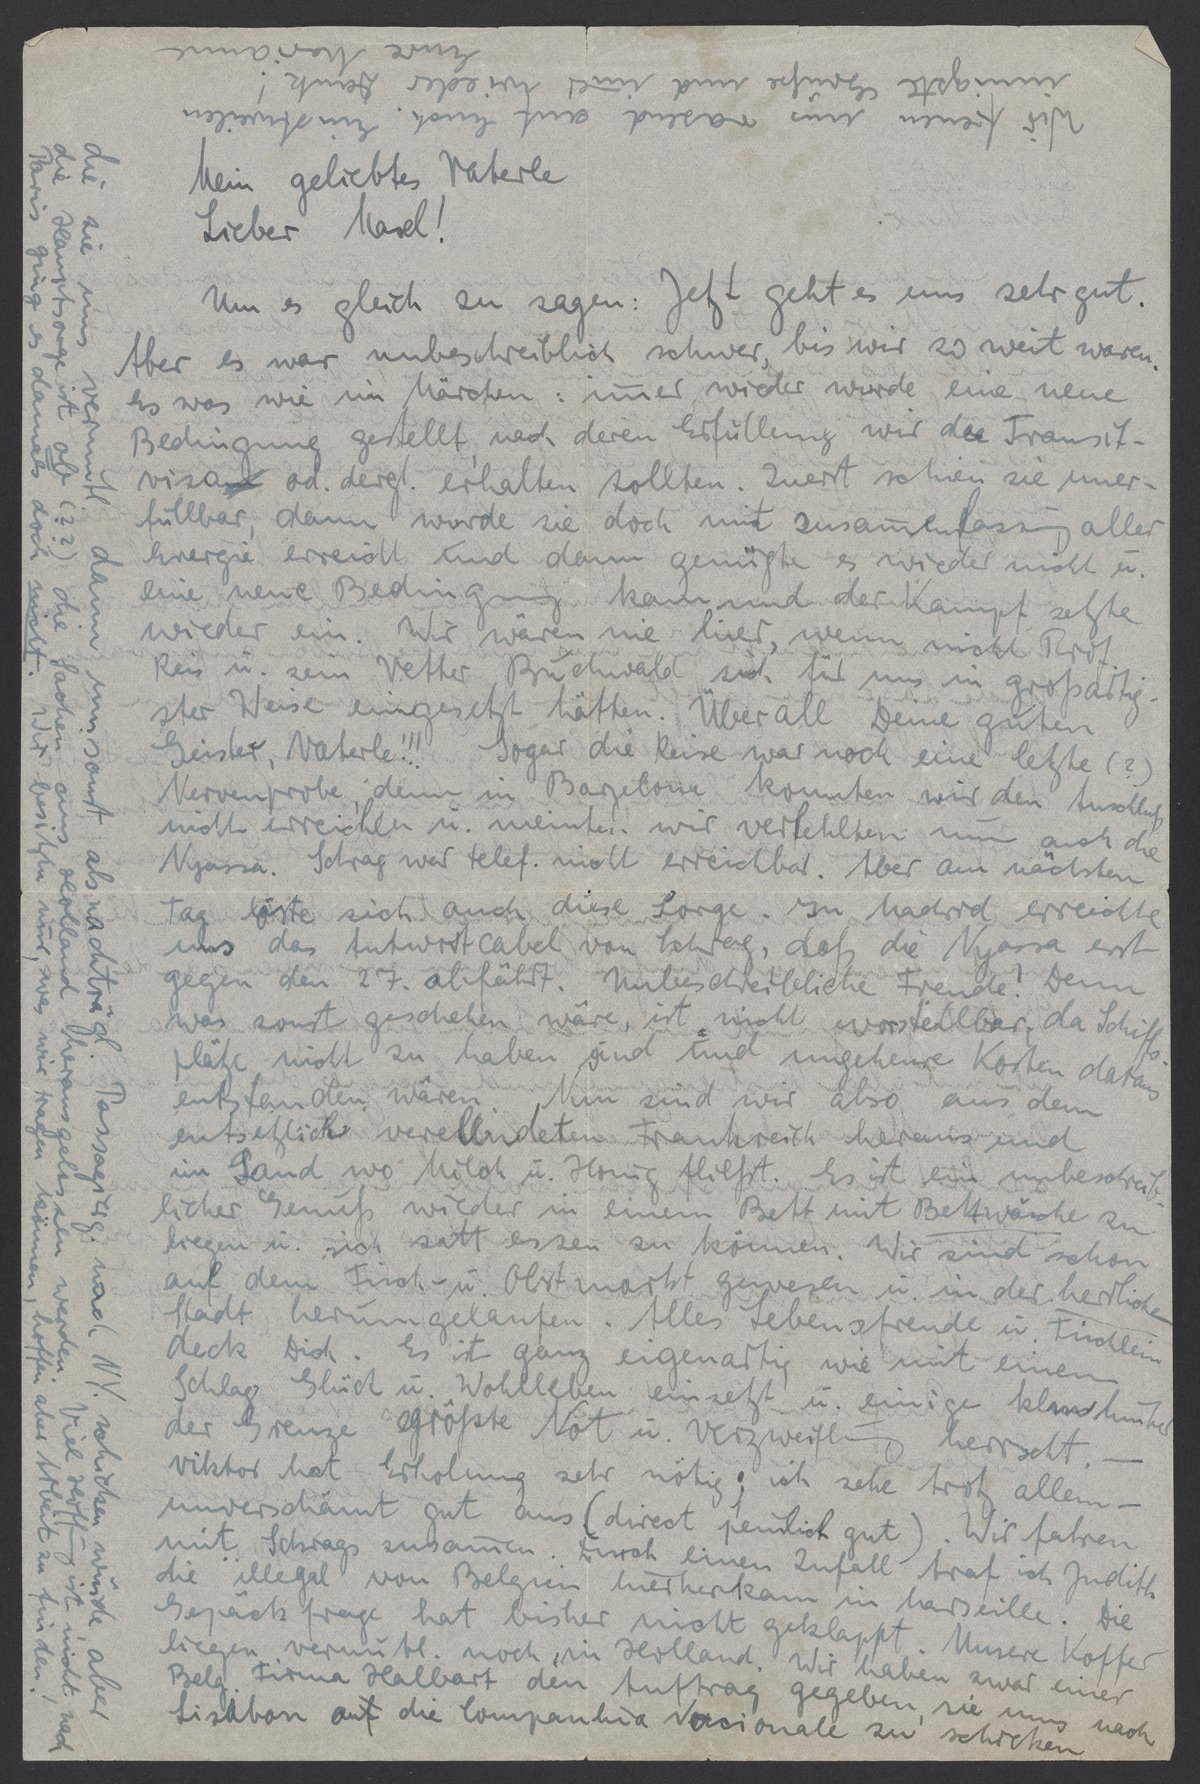 Mein geliebtes Vaterle
Lieber Maxl!
Um es gleich zu sagen: Jetzt geht es uns sehr gut.
Aber es war unbeschreiblich schwer, bis wir so weit waren.
Es war wie im Märchen: immer wieder wurde eine neue
Bedingung gestellt, nach deren Erfüllung wir die Transit-
visa od. dergl. erhalten sollten. Zuerst schien sie uner-
füllbar, dann wurde sie doch mit Zusammenfassung aller
Energie erreicht und dann genügte es wieder nicht u.
eine neue Bedingung kam und der Kampf setzte
wieder ein. Wir wären nie hier, wenn nicht Prof.
Reis u. sein Vetter Buchwald sich für uns in großartig-
ster Weise eingesetzt hätten. Überall Deine guten
Geister, Vaterle!!! Sogar die Reise war noch eine letzte (?)
Nervenprobe, denn in Barzelona konnten wir den Anschluß
nicht erreichen u. meinten wir verfehlten nun auch die
Nyassa. Schrag war telef. nicht erreichbar. Aber am nächsten
Tag löste sich auch diese Sorge. In Madrid erreichte
uns das Antwortcabel von Schrag, daß die Nyassa erst
gegen den 27. abfährt. Unbeschreibliche Freude! Denn
was sonst geschehen wäre, ist nicht vorstellbar, da Schiffs-
plätze nicht zu haben sind und ungeheure Kosten daraus
entstanden wären. Nun sind wir also aus dem
entsetzlich verelendeten Frankreich heraus und
im Land wo Milch u. Honig fließt. Es ist ein unbeschreib-
licher Genuß wieder in einem Bett mit Bettwäsche zu
liegen u. sich satt essen zu können. Wir sind schon
auf dem Fisch- u. Obstmarkt gewesen u. in der herrlichen
Stadt herumgelaufen. Alles Lebensfreude u. Tischlein
deck Dich. Es ist ganz eigenartig wie mit einem
Schlag Glück u. Wohlleben einsetzt u. einige km hinter
der Grenze größte Not u. Verzweiflung herrscht. —
Viktor hat Erholung sehr nötig; ich sehe trotz allem —
unverschämt gut aus (direct peinlich gut). Wir fahren
mit Schrags zusammen. Durch einen Zufall traf ich Judith
die illegal von Belgien hierherkam in Marseille. Die
Gepäcksfrage hat bisher nicht geklappt. Unsere Koffer
liegen vermutl. noch in Holland. Wir haben zwar einer
Belg. Firma Halbart den Auftrag gegeben, sie uns nach
Lissabon auf die Companhia Nacionale zu schicken
die sie uns vermutl. dann umsonst als nachträgl. Passagierg. nach NY. schicken würde aber
die Hauptsorge ist ob (??) die Sachen aus Holland herausgelassen werden. Viel Hoffng ist nicht, nach
Paris ging es damals doch nicht. Wir besitzen nur, was wir tragen können, hoffen aber Arbeit zu finden!
Wir freuen uns rasend auf Euch. Einstweilen
innigste Grüße und immer wieder Dank!
Eure Marianne